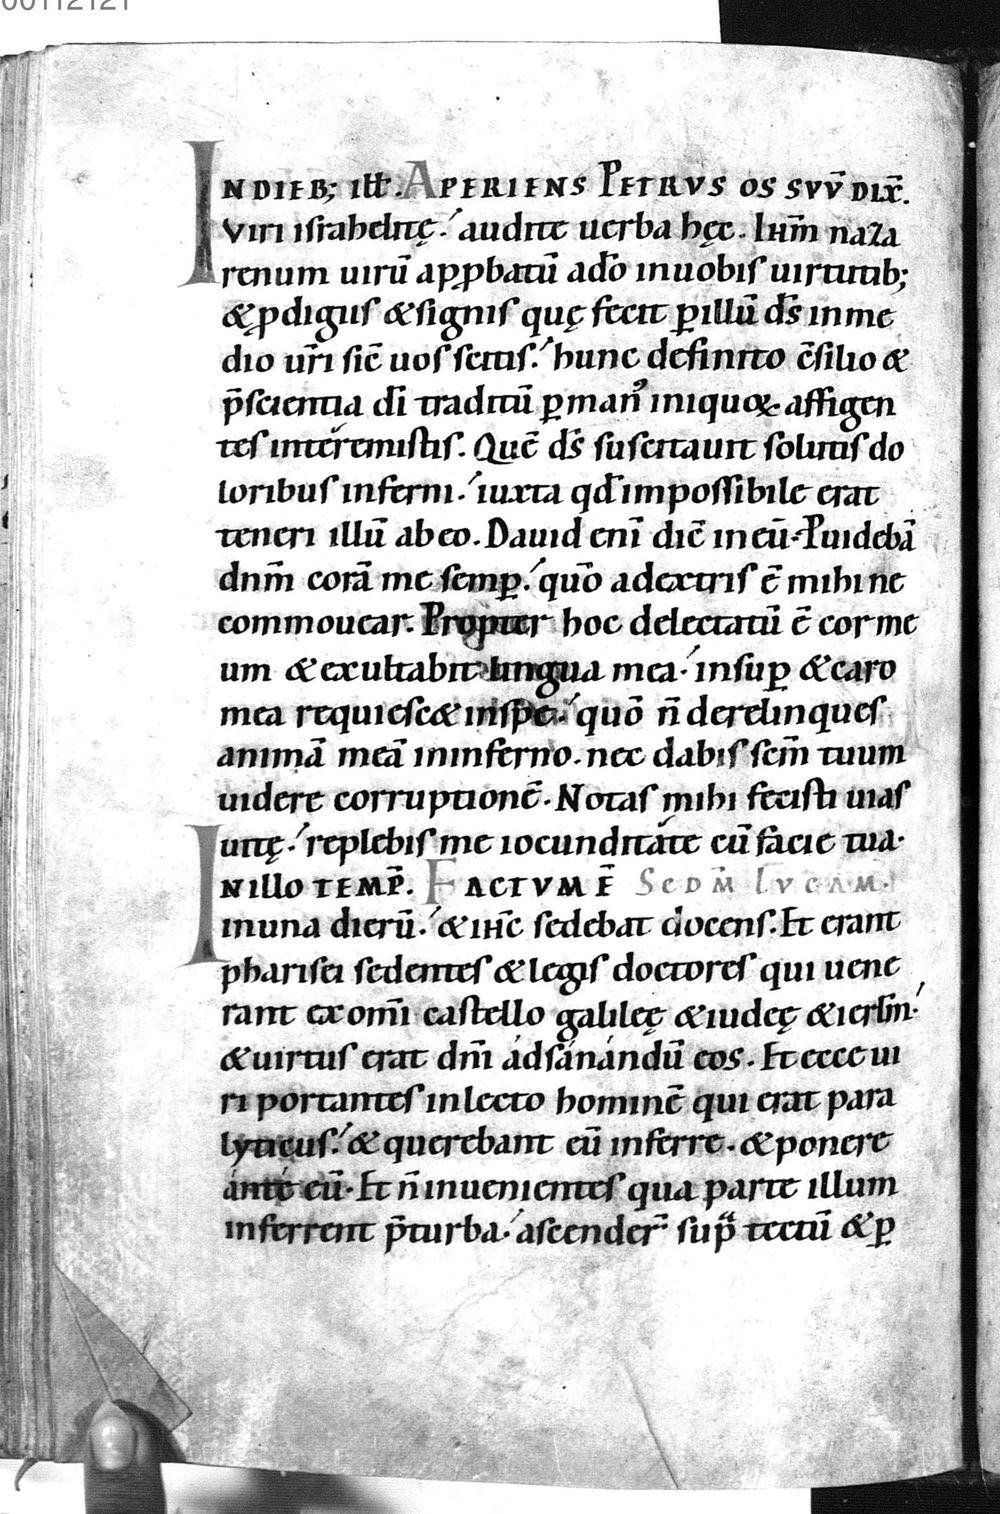 00112121
INDIEB; ill̅. APERIENS PETRVS OS SVV̅ DIX̅.
Viri israhelitę. audite uerba hęc. Ihm̅ naza
renum uirū apꝓbatū adō inuobis uirtutib;
&ꝓdigiis &signis quę fecit ꝑillū ds̅ inme
dio ur̅i sic̅ uos scitis. hunc definito c̅silio &
p̅scientia di̅ traditū ꝑman᷒ iniquoꝝ affigen
tes interemistis. Quē ds̅ suscitauit solutis do
loribus inferni. iuxta qd̅ impossibile erat
teneri illū abeo. Dauid enī dic̅ ineū. Puidebā
dnm̅ corā me semꝑ. quō adextris ē mihi ne
commouear. Propter hoc delectatū ē cor me
um & exultabit lingua mea. insuꝑ &caro
mea requiesc& inspe. quō n̅ derelinques
animā meā ininferno. nec dabis scm̅ tuum
uidere corruptionē. Notas mihi fecisti uias
uitę. replebis me iocunditate cū facie tua.
INillo TEMP̅. FACTVM Ē SCDM̅ LVCAM.
inuna dierū. & ihc̅ sedebat docens. Et erant
pharisei sedentes &legis doctores qui uene
rant exomī castello galileę &iudeę &ierlm̅.
&uirtus erat dnī adsanandū eos. Et ecce ui
ri portantes inlecto hominē qui erat para
lyticus. & querebant eū inferre. &ponere
ante eū. Et n̅ inuenientes qua parte illum
inferrent p̅turba. ascender̅ sup̅ tectū &ꝑ